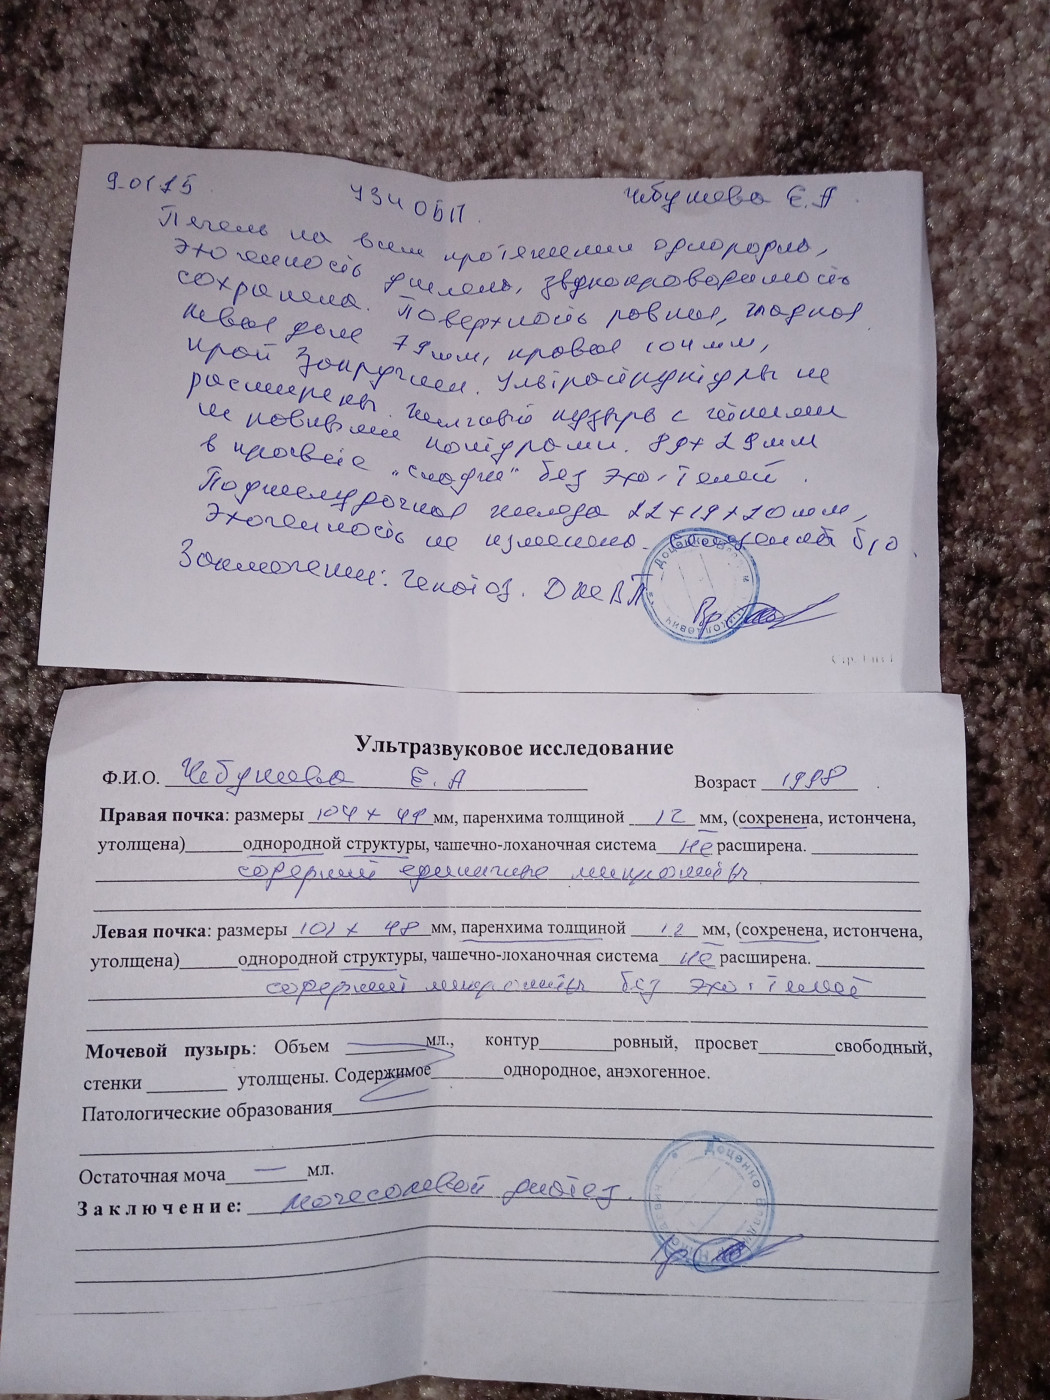 УЗИ ОБП.
Печень на всем протяжении однородна,
эхогенность, звукопроводимость
сохранена. Поверхность ровная, гладкая.
Левая доля 79мм, правая 104мм,
край закруглен. не
расширены. Желчный пузырь с
контурами. 89х29мм
в просвете "сладж" без эхо-теней.
Поджелудочная железа 22х19х20мм,
эхогенность не изменена. б/о.
Заключение: Гепатоз. ДЖВП
Вр.
Ультразвуковое исследование
Ф.И.О. Е.А Возраст 1998
Правая почка: размеры 104 х мм, паренхима толщиной 12 мм, (сохренена, истончена,
утолщена) однородной структуры, чашечно-лоханочная система не расширена.
содержит единичные микролиты
Левая почка: размеры 101 х 48 мм, паренхима толщиной 12 мм, (сохренена, истончена,
утолщена) однородной структуры, чашечно-лоханочная система не расширена.
содержит микролиты без эхо-теней
Мочевой пузырь: Объем мл., контур ровный, просвет свободный,
стенки утолщены. Содержимое однородное, анэхогенное.
Патологические образования
Остаточная моча — мл.
Заключение: мочесолевой диатез.
Вр